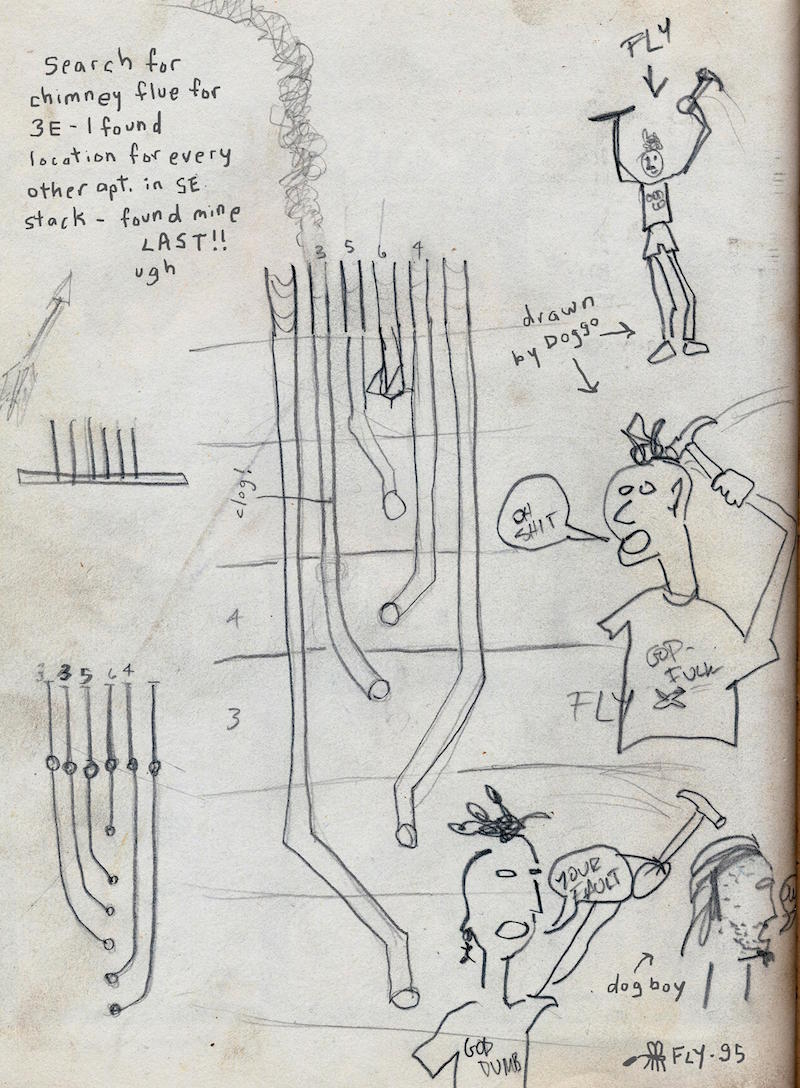 Search for
chimney flue for
3E - I found
location for every
other apt. in SE
stack - found mine
LAST!!
ugh
FLY
3 5 6 4
drawn
by Doggo
clog!
OH
SHIT
GOD-
FUCK
FLY
4
3
3 3 5 6 4
YOUR
FAULT
dogboy
GOD
DUMB
FLY-95